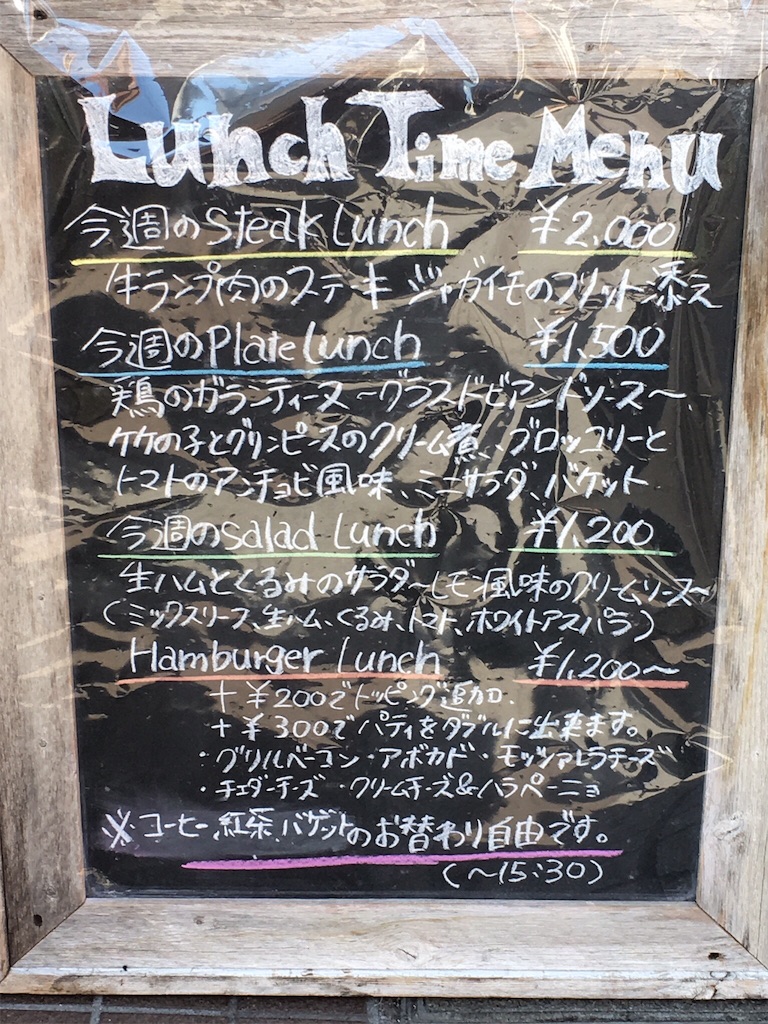 Lunch Time Menu
今週のSteak Lunch ¥2,000
牛ランプ肉のステーキ ジャガイモのフリット添え
今週のPlate Lunch ¥1,500
鶏のガランティーヌ〜グラスドビアンドソース〜
タケの子とグリンピースのクリーム煮、ブロッコリーと
トマトのアンチョビ風味、ミニサラダ、バケット
今週のSalad Lunch ¥1,200
生ハムとくるみのサラダ〜レモン風味のクリームソース〜
(ミックスリーフ、生ハム、くるみ、トマト、ホワイトアスパラ)
Hamburger Lunch ¥1,200〜
+¥200でトッピング追加.
+¥300でパティをダブルに出来ます。
・グリルベーコン・アボカド・モッツァレラチーズ
・チェダーチーズ・クリームチーズ&ハラペーニョ
※コーヒー、紅茶、バゲットのお替わり自由です。
(〜15:30)